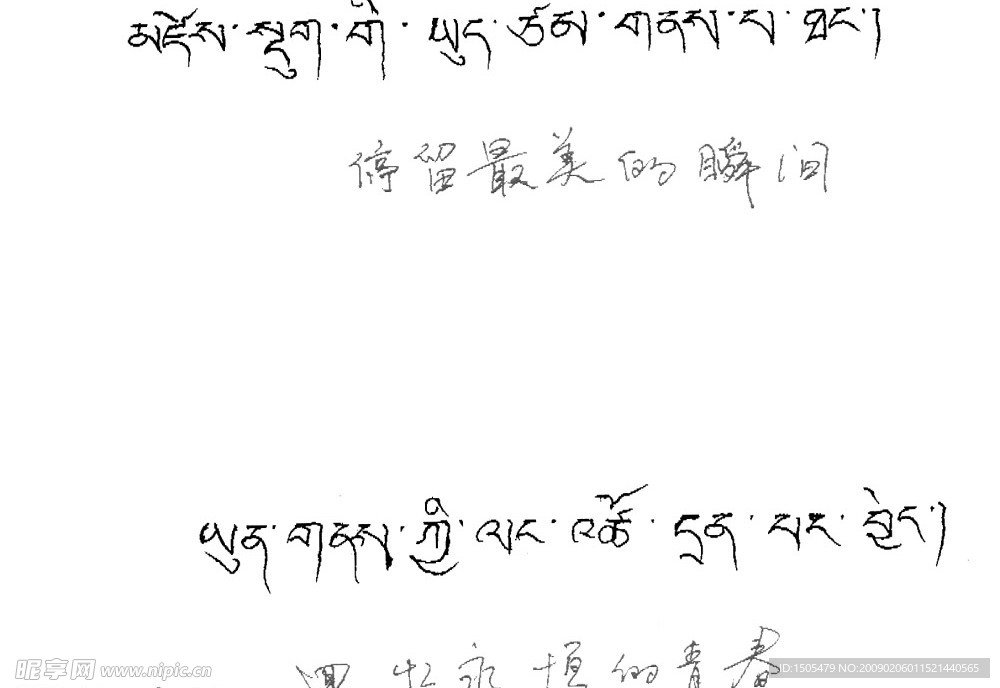 མཛེས་སྡུག་གི་ཡུད་ཙམ་གནས་པ་ཐང་།
停留最美的瞬间
ཡུན་གནས་ཀྱི་ལང་འཚོ་དྲན་པར་བྱེད།
回忆永恒的青春
昵享网 www.nipic.cn
ID:1505479 NO:20090206011521440565